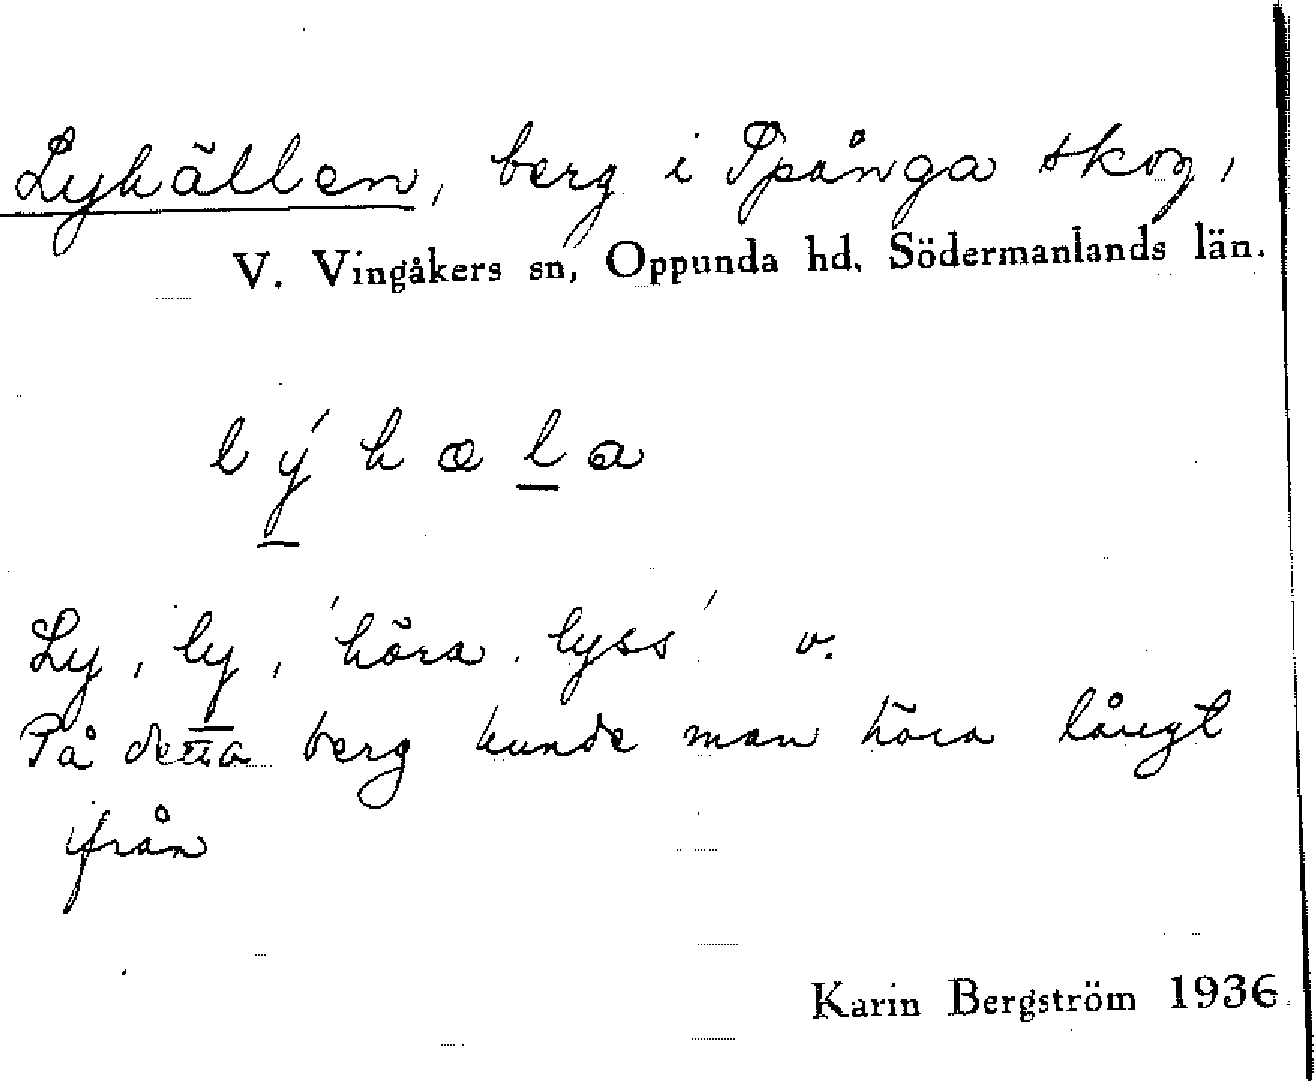 Lyhällen, berg i Spånga skog,
V. Vingåkers sn, Oppunda hd, Södermanlands län.
lý̱hæḻa
Ly, ly̱, 'höra, lyss' v.
På detta berg kunde man höra långt
ifrån
Karin Bergström 1936